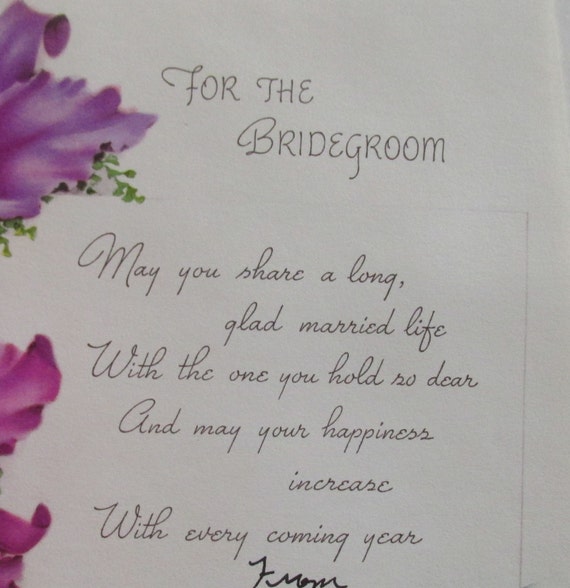 FOR THE
BRIDEGROOM
May you share a long,
glad married life
With the one you hold so dear
And may your happiness
increase
With every coming year
From